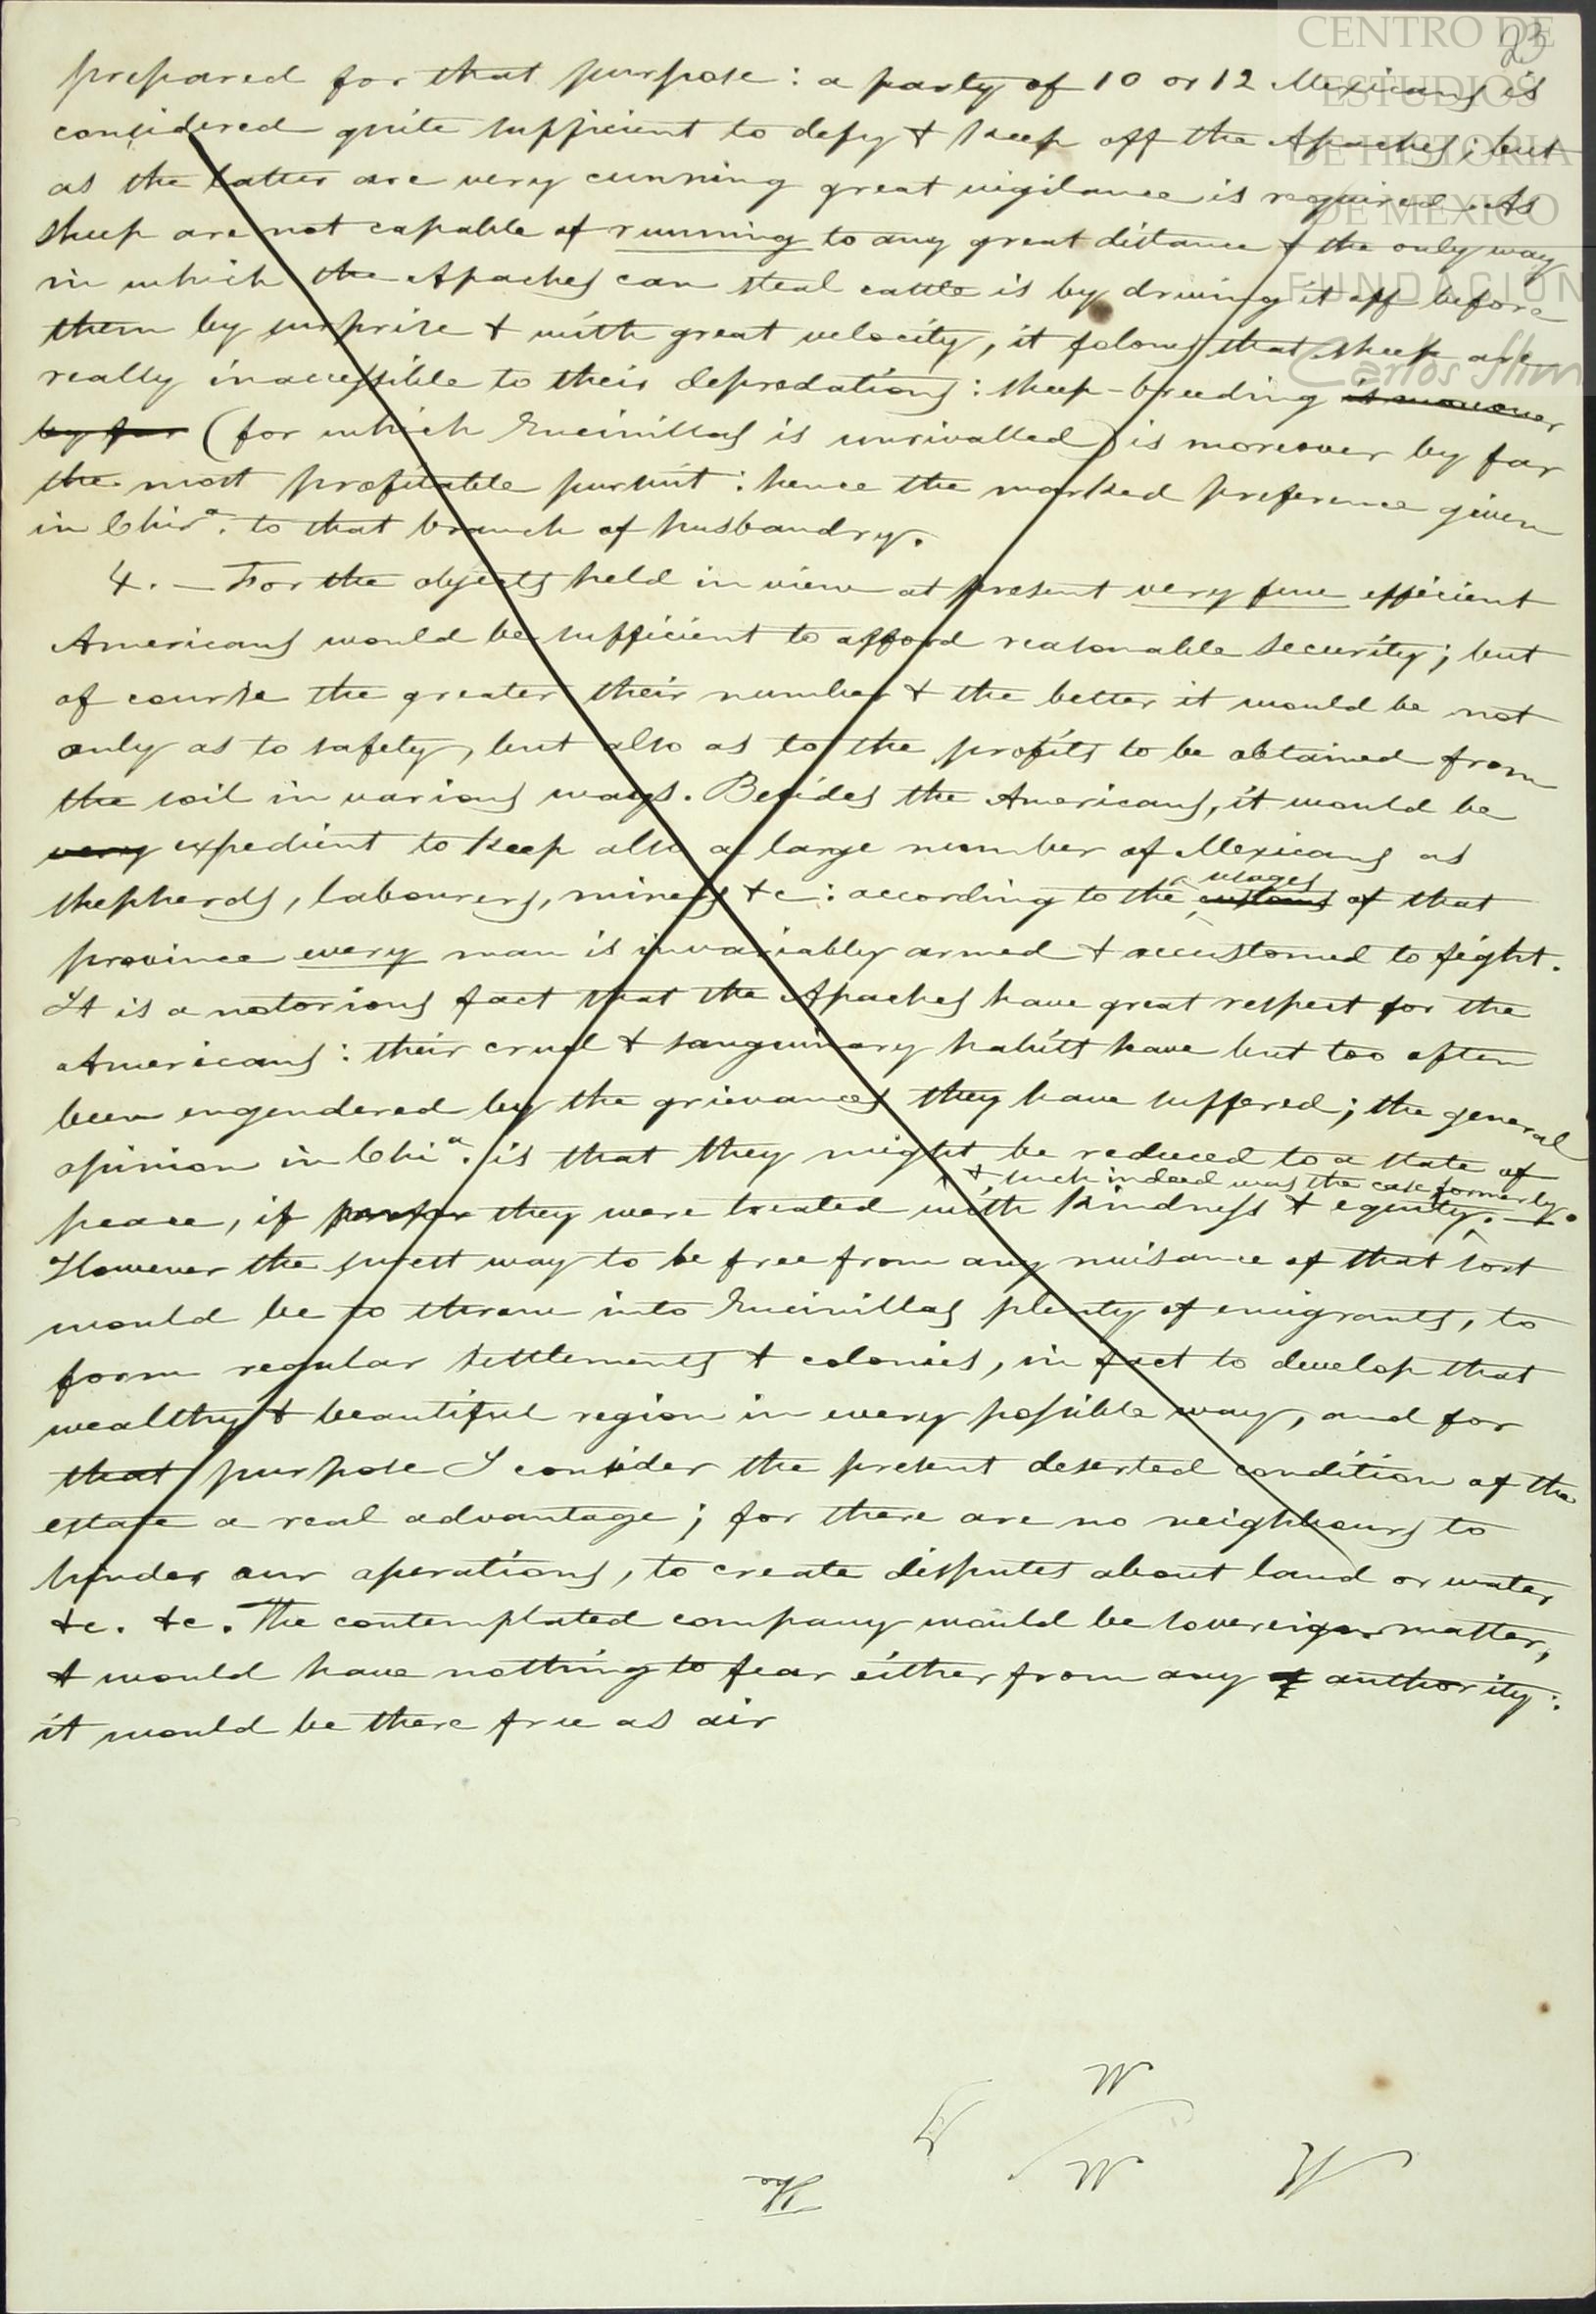 23
CENTRO DE
ESTUDIOS
DE HISTORIA
DE MEXICO
FUNDACIÓN
Carlos Slim
prepared for that purpose: a party of 10 or 12 Mexicans is
considered quite sufficient to defy & keep off the Apaches; but
as the latter are very cunning great vigilance is required. As
sheep are not capable of running to any great distance & the only way
in which the Apaches can steal cattle is by driving it off before
them by surprise & with great velocity, it folows that sheep are
really inaccessible to their depredations: sheep-breeding is moreover
by far (for which Encinillas is unrivalled) is moreover by far
the most profitable pursuit: hence the marked preference given
in Chira. to that branch of husbandry.
4. — For the objects held in view at present very few efficient
Americans would be sufficient to afford reasonable security; but
of course the greater their number & the better it would be not
only as to safety, but also as to the profits to be obtained from
the soil in various ways. Besides the Americans, it would be
very expedient to keep also a large number of Mexicans as
usages
shepherds, labourers, miners &c: according to the customs of that
province every man is invariably armed & accustomed to fight.
It is a notorious fact that the Apaches have great respect for the
Americans: their cruel & sanguinary habits have but too often
been engendered by the grievances they have suffered; the general
opinion in Chia. is that they might be reduced to a state of
& such indeed was the case formerly.
peace, if they were treated with kindness & equity. —
However the surest way to be free from any nuisance of that sort
would be to throw into Encinillas plenty of emigrants, to
form regular settlements & colonies, in fact to develop that
wealthy & beautiful region in every possible way, and for
that purpose I consider the present deserted condition of the
estate a real advantage; for there are no neighbours to
hinder our operations, to create disputes about land or water,
&c. &c. The contemplated company would be sovereign master,
& would have nothing to fear either from any authority:
it would be there free as air
M
M
The